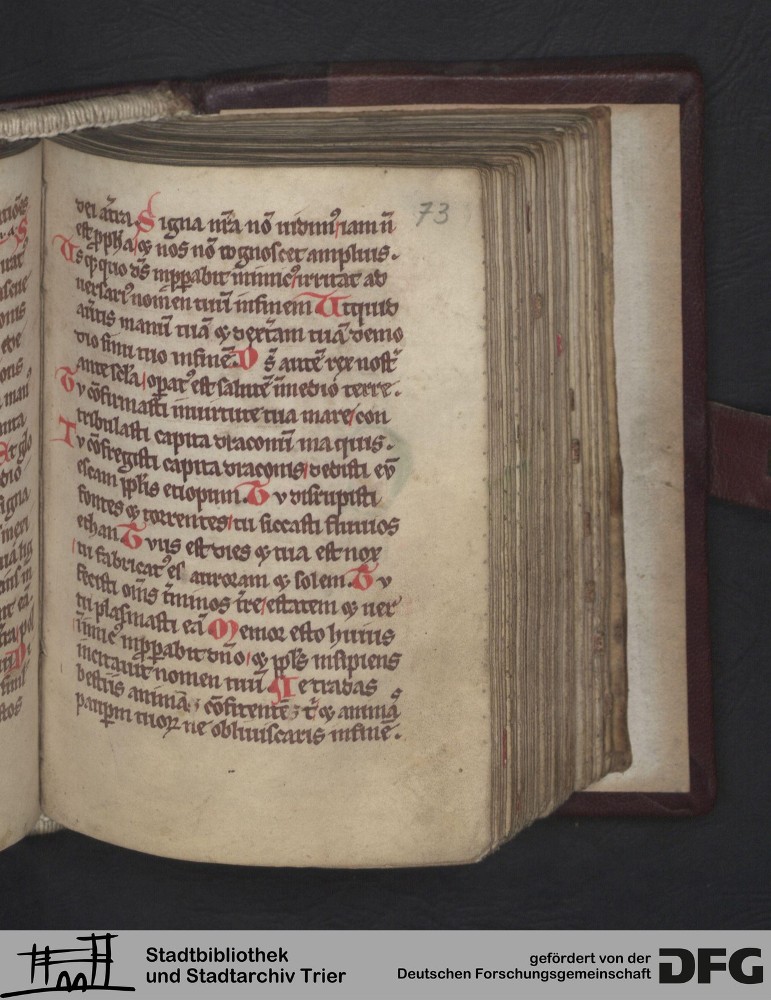 73
dei a terra Signa nr̄a nō vidim᷒ iam nō
est ꝓpħa ⁊ nos nō cognoscet amplius.
Usq̄quo ds̄ inpp̄abit inimic᷒ irritat ad
versari᷒ nomen tuū infinem Ut quid
av̄tis manū tuā ⁊ dext̄am tuā de mo
dio sinu tuo infinē. Ds̄ autē rex nost̄
ante sc̄la, opat᷒ est salutē ī medio terre.
Tu cōfirmasti in virtute tua mare con
tribulasti capita draconū in aquis.
Tu cōfregisti capita draconis dedisti eū
escam pp̄lis etiopum. Tu disrupisti
fontes ⁊ torrentes tu siccasti fluuios
ethan Tuus est dies ⁊ tua est nox
tu fabricat᷒ es auroram ⁊ solem. Tu
fecisti om̄s t̄minos t̄re estatem ⁊ ver
tu plasmasti ea Memor esto huius
inimic᷒ inpp̄abit dn̄o ⁊ pp̄ls insipiens
incitauit nomen tuū Ne tradas
bestiis animas cōfitentes t̄ ⁊ animas
paupm tuoꝝ ne obliuiscaris infinē.
Stadtbibliothek
und Stadtarchiv Trier
gefördert von der
Deutschen Forschungsgemeinschaft
DFG